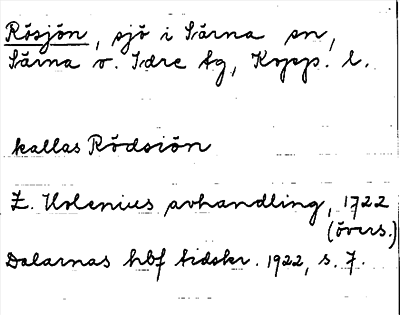 Rösjön, sjö i Särna sn,
Särna o. Idre tg, Kopp. l.
kallas Rödsiön
E. Holenius avhandling, 1722
(övers.)
Dalarnas hbf tidskr. 1922, s. 7.